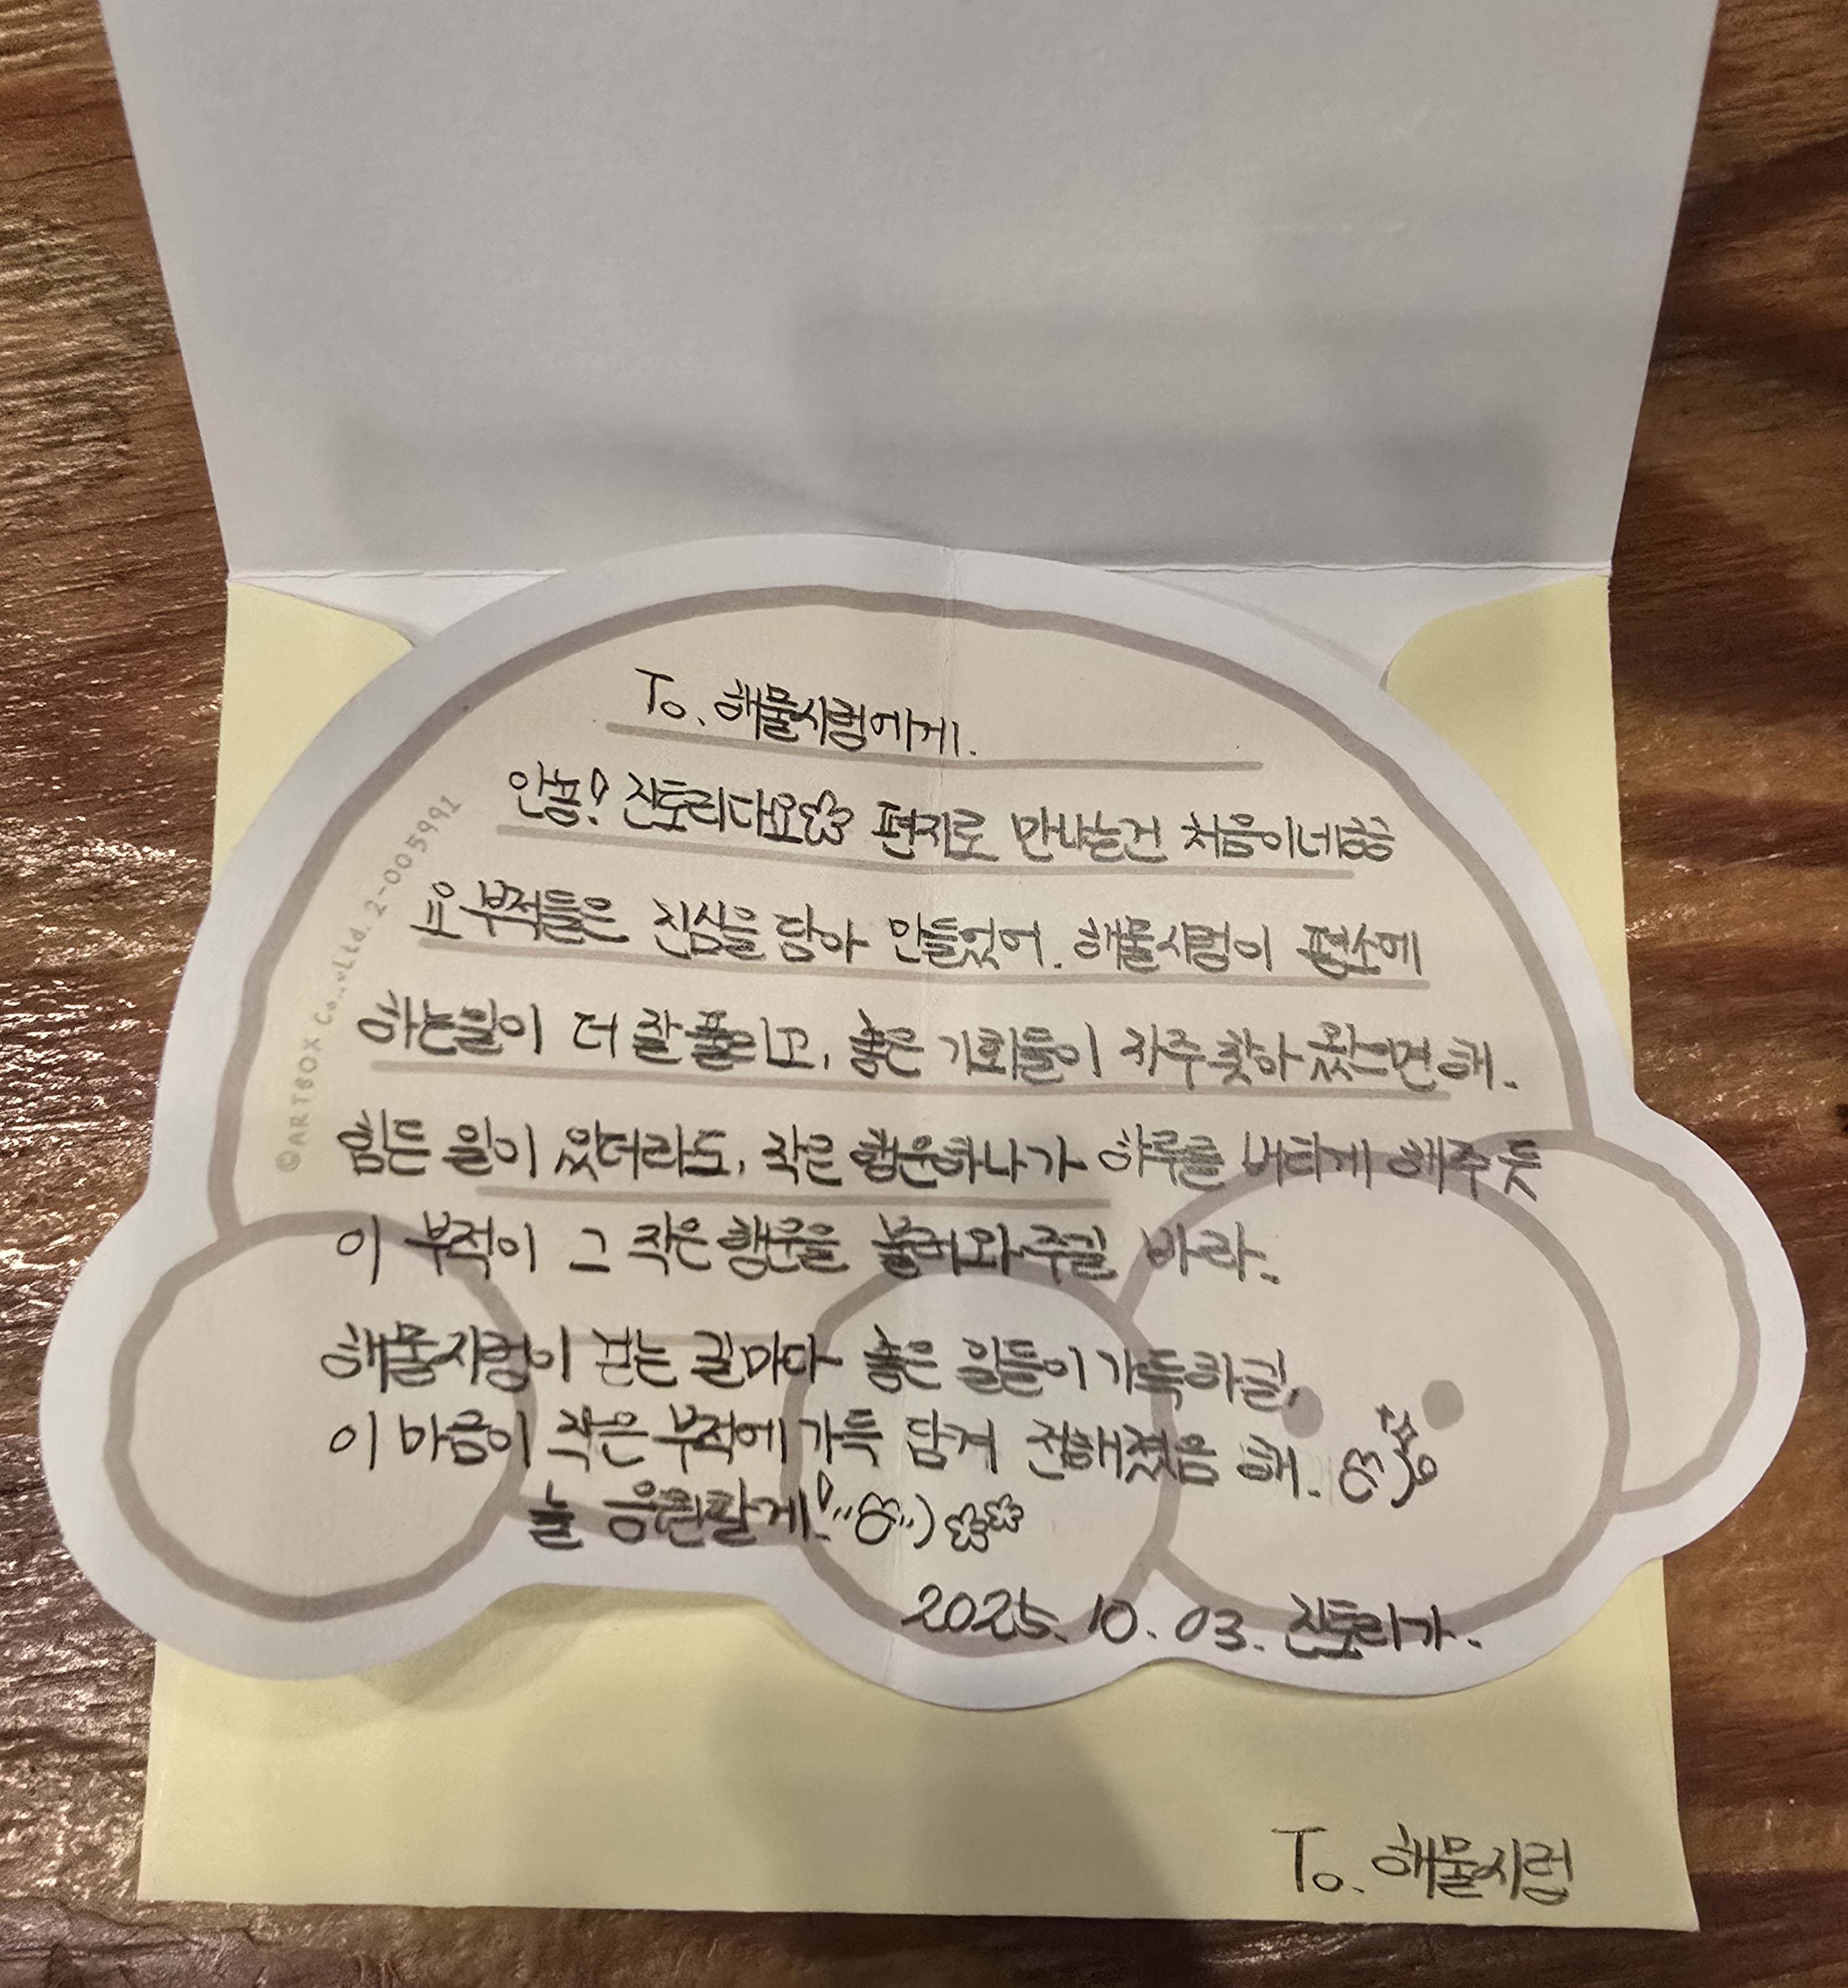 To. 해물시렁에게.
안뇽! 진토리다요 편지로 만나는건 처음이네ㅎㅎ
요 부적들은 진심을 담아 만들었어. 해물시렁이 평소에
하는일이 더 잘 풀리고, 좋은 기회들이 자주 찾아 왔으면 해.
힘든 일이 있더라도, 작은 행운하나가 하루를 버티게 해주듯
이 부적이 그 작은 행운을 불러와 주길 바라.
해물시렁이 걷는 길마다 좋은 일들이 가득하길,
이 마음이 작은 부적에 가득 담겨 전해졌음 해.
늘 응원할게!
2025. 10. 03. 진토리가.
©ARTBOX Co., Ltd. 2-005991
To. 해물시렁